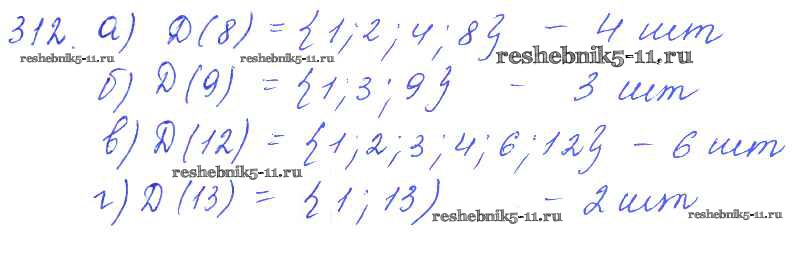 312. а) D(8) = {1;2;4;8} - 4 шт
reshebnik5-11.ru reshebnik5-11.ru reshebnik5-11.ru
б) D(9) = {1;3;9} - 3 шт
в) D(12) = {1;2;3;4;6;12} - 6 шт
reshebnik5-11.ru
г) D(13) = {1;13) - 2 шт
reshebnik5-11.ru reshebnik5-11.ru